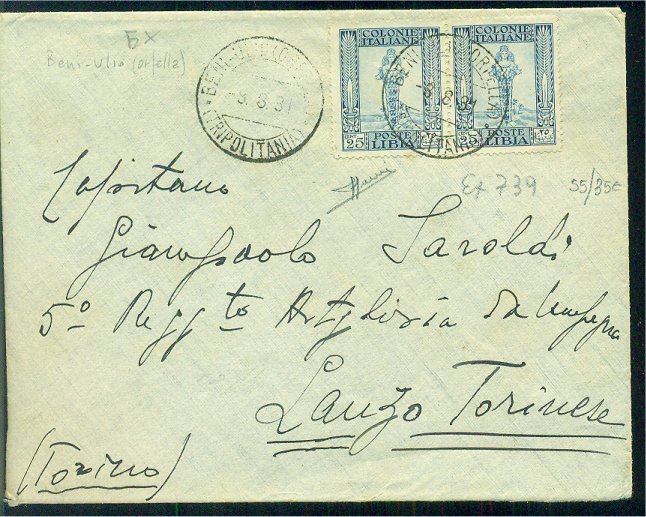 Ex
Beni-Ulid (orfella)
BENI-
-8.8.31
(TRIPOLITANIA)
COLONIE ITALIANE
CENT 25 POSTE LIBIA
COLONIE ITALIANE
25 POSTE LIBIA
BENI ORFELLA)
Ex 739 55/35€
Capitano
Giampaolo Saroldi
5º Reggto Artiglieria da Campagna
Lanzo Torinese
(Torino)